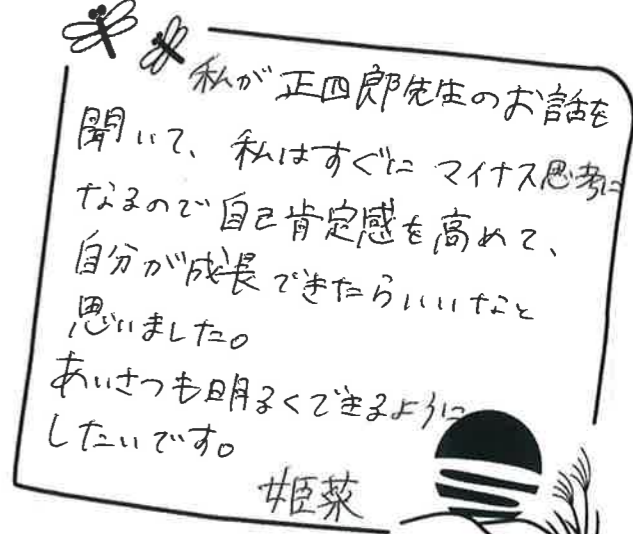 私が正四郎先生のお話を
聞いて、私はすぐにマイナス思考に
なるので自己肯定感を高めて、
自分が成長できたらいいなと
思いました。
あいさつも明るくできるように
したいです。
姫菜